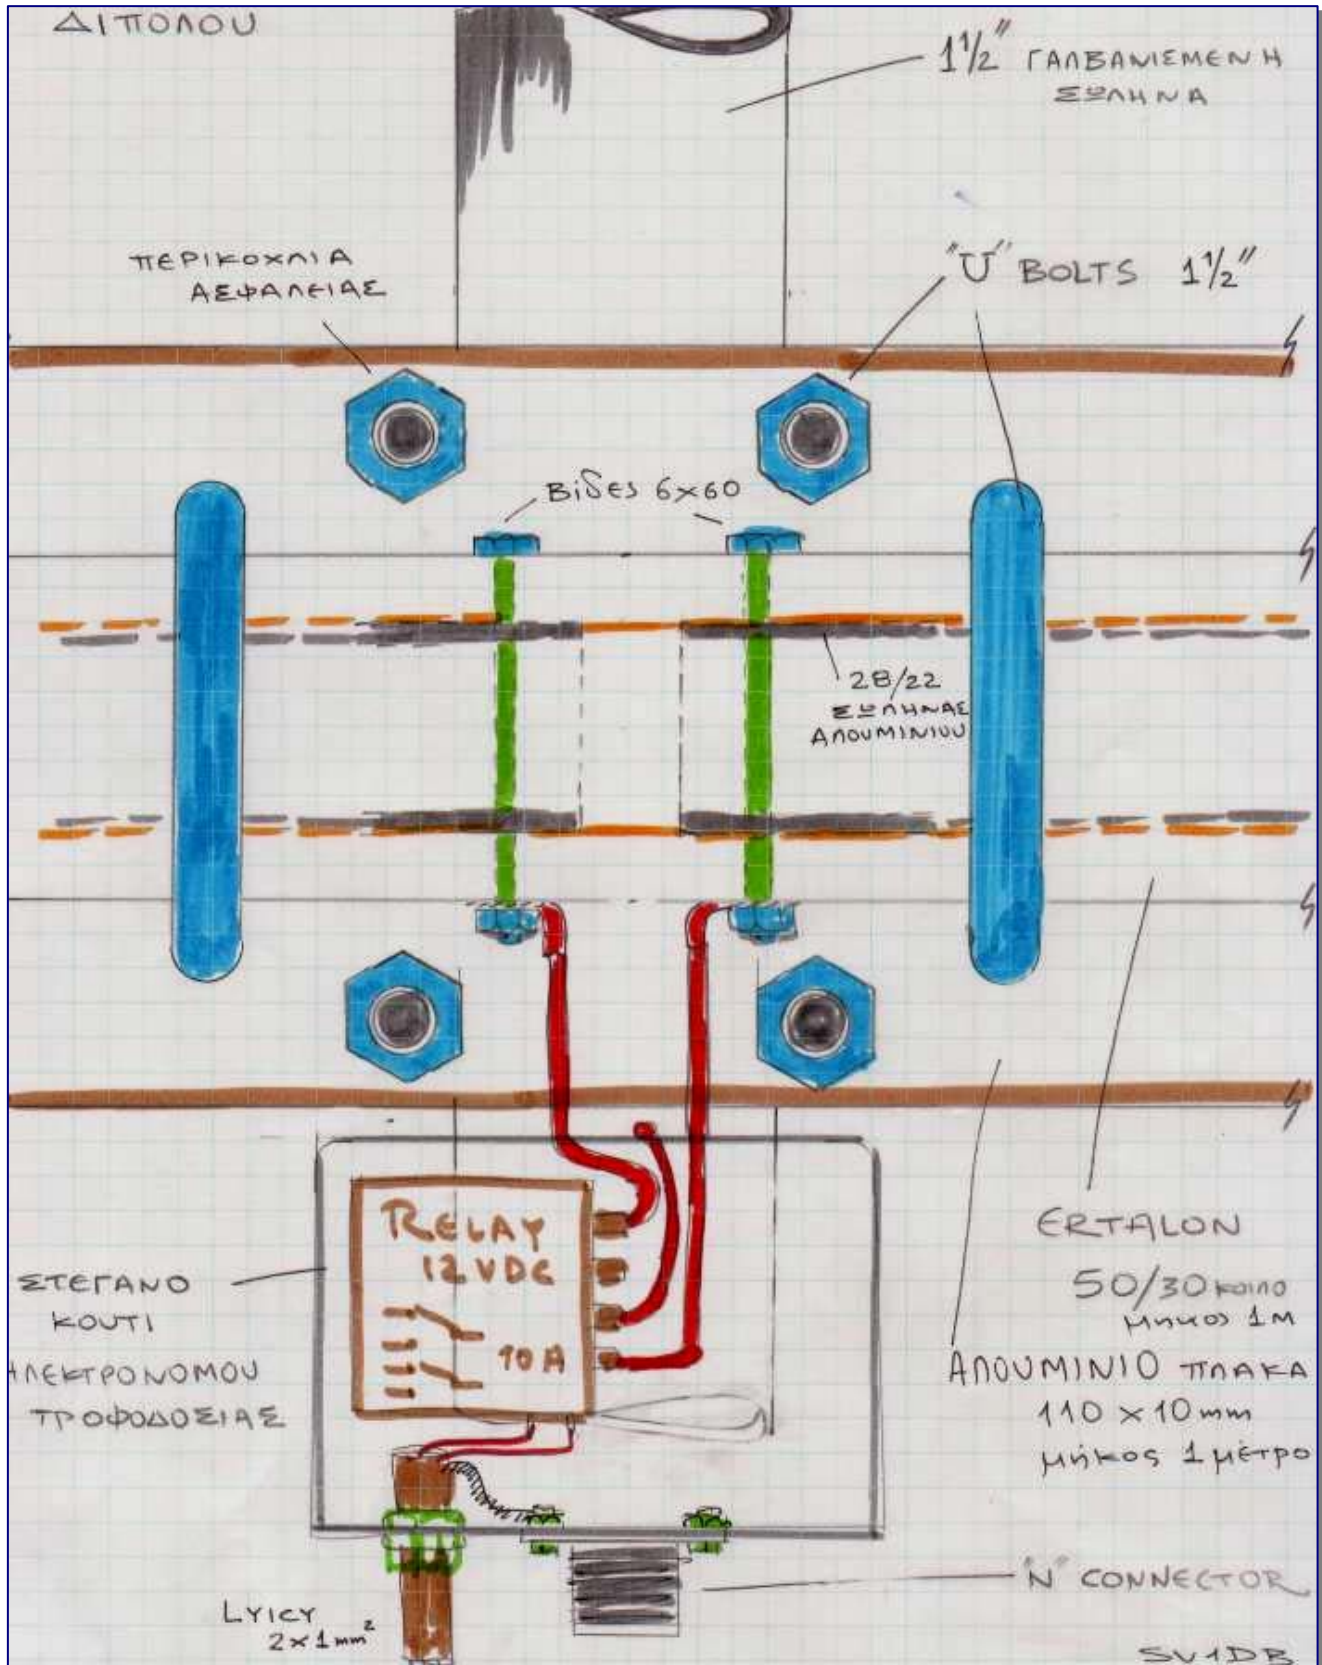 ΔΙΠΟΛΟΥ
1½" ΓΑΛΒΑΝΙΣΜΕΝΗ
ΣΩΛΗΝΑ
ΠΕΡΙΚΟΧΛΙΑ
ΑΣΦΑΛΕΙΑΣ
"U" BOLTS 1½"
Βιδες 6×60
28/22
ΣΩΛΗΝΑΣ
ΑΛΟΥΜΙΝΙΟΥ
RELAY
12VDC
10A
ΣΤΕΓΑΝΟ
ΚΟΥΤΙ
ΗΛΕΚΤΡΟΝΟΜΟΥ
ΤΡΟΦΟΔΟΣΙΑΣ
ERTALON
50/30 κοιλο
μηκος 1M
ΑΛΟΥΜΙΝΙΟ ΠΛΑΚΑ
110 × 10 mm
μήκος 1 μέτρο
"N" CONNECTOR
LYICY
2×1mm²
SV1DB